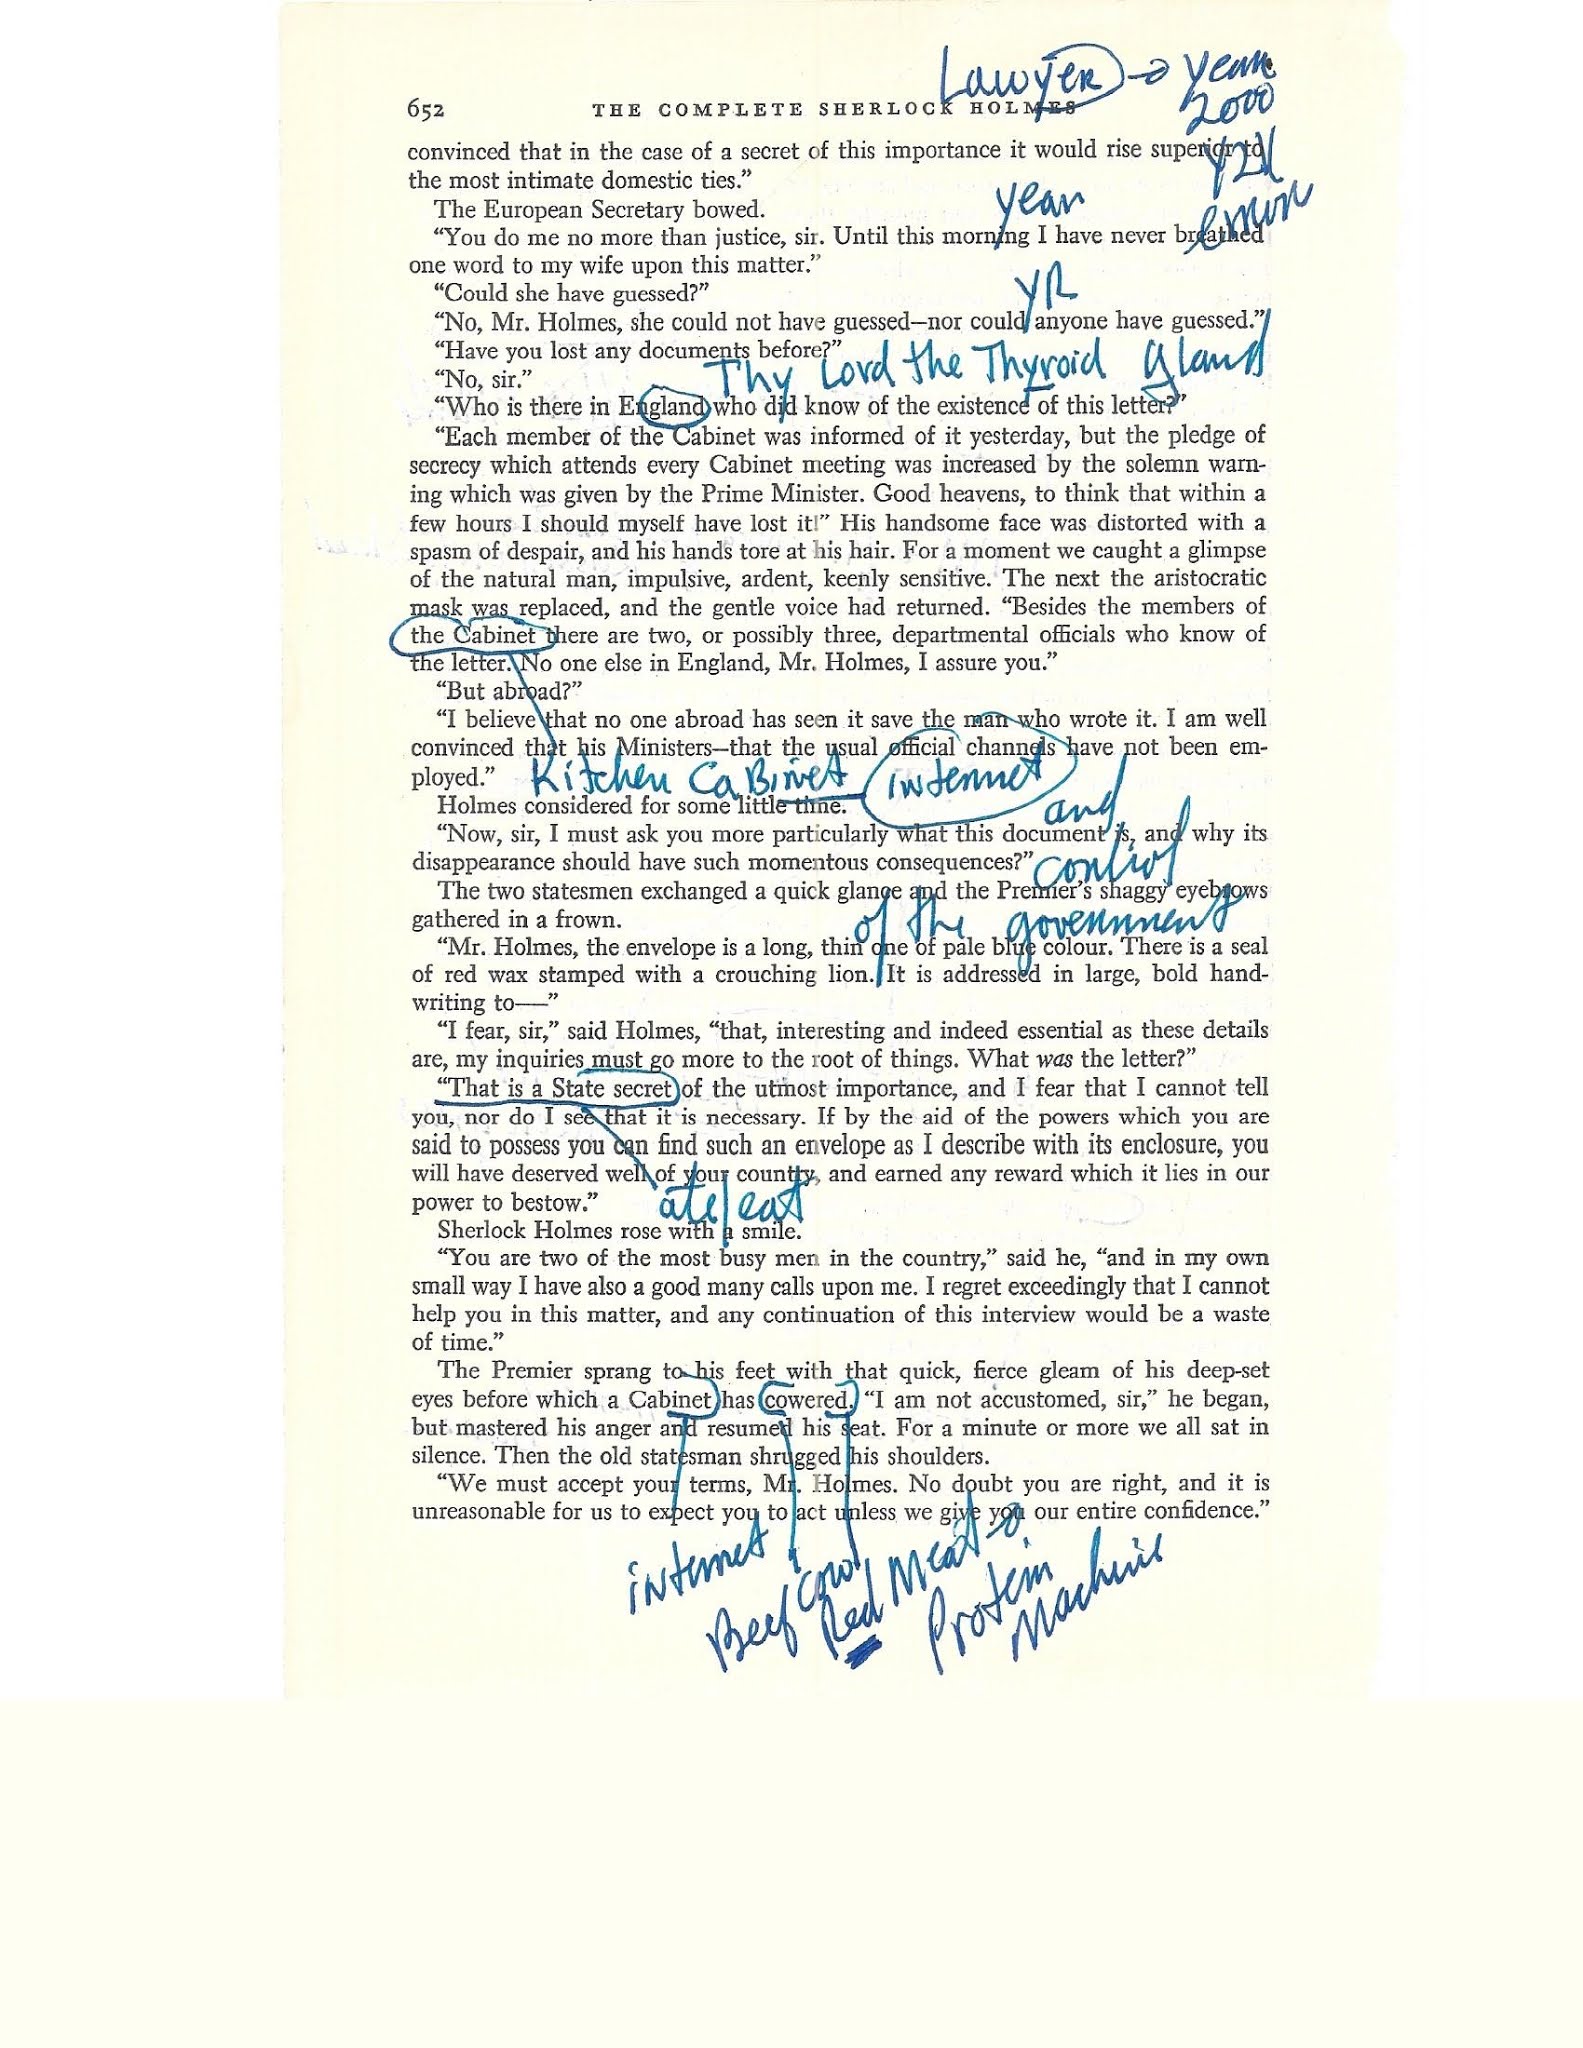 Lawyer → year
2000
652 THE COMPLETE SHERLOCK HOLMES
Y2K
error
convinced that in the case of a secret of this importance it would rise superior to
the most intimate domestic ties.”
year
The European Secretary bowed.
“You do me no more than justice, sir. Until this morning I have never breathed
one word to my wife upon this matter.”
“Could she have guessed?”
YR
“No, Mr. Holmes, she could not have guessed—nor could anyone have guessed.”
“Have you lost any documents before?”
Thy Lord the Thyroid gland
“No, sir.”
“Who is there in England who did know of the existence of this letter?”
“Each member of the Cabinet was informed of it yesterday, but the pledge of
secrecy which attends every Cabinet meeting was increased by the solemn warn-
ing which was given by the Prime Minister. Good heavens, to think that within a
few hours I should myself have lost it!” His handsome face was distorted with a
spasm of despair, and his hands tore at his hair. For a moment we caught a glimpse
of the natural man, impulsive, ardent, keenly sensitive. The next the aristocratic
mask was replaced, and the gentle voice had returned. “Besides the members of
the Cabinet there are two, or possibly three, departmental officials who know of
the letter. No one else in England, Mr. Holmes, I assure you.”
“But abroad?”
“I believe that no one abroad has seen it save the man who wrote it. I am well
convinced that his Ministers—that the usual official channels have not been em-
ployed.”
Kitchen CaBinet internet
Holmes considered for some little time.
and
“Now, sir, I must ask you more particularly what this document is, and why its
disappearance should have such momentous consequences?”
control
The two statesmen exchanged a quick glance and the Premier’s shaggy eyebrows
gathered in a frown.
of the government
“Mr. Holmes, the envelope is a long, thin one of pale blue colour. There is a seal
of red wax stamped with a crouching lion. It is addressed in large, bold hand-
writing to—”
“I fear, sir,” said Holmes, “that, interesting and indeed essential as these details
are, my inquiries must go more to the root of things. What was the letter?”
“That is a State secret of the utmost importance, and I fear that I cannot tell
you, nor do I see that it is necessary. If by the aid of the powers which you are
said to possess you can find such an envelope as I describe with its enclosure, you
will have deserved well of your country, and earned any reward which it lies in our
power to bestow.”
ate/eat
Sherlock Holmes rose with a smile.
“You are two of the most busy men in the country,” said he, “and in my own
small way I have also a good many calls upon me. I regret exceedingly that I cannot
help you in this matter, and any continuation of this interview would be a waste
of time.”
The Premier sprang to his feet with that quick, fierce gleam of his deep-set
eyes before which a Cabinet has cowered. “I am not accustomed, sir,” he began,
but mastered his anger and resumed his seat. For a minute or more we all sat in
silence. Then the old statesman shrugged his shoulders.
“We must accept your terms, Mr. Holmes. No doubt you are right, and it is
unreasonable for us to expect you to act unless we give you our entire confidence.”
internet
Beef Cow
Red Meat →
Protein
Machine